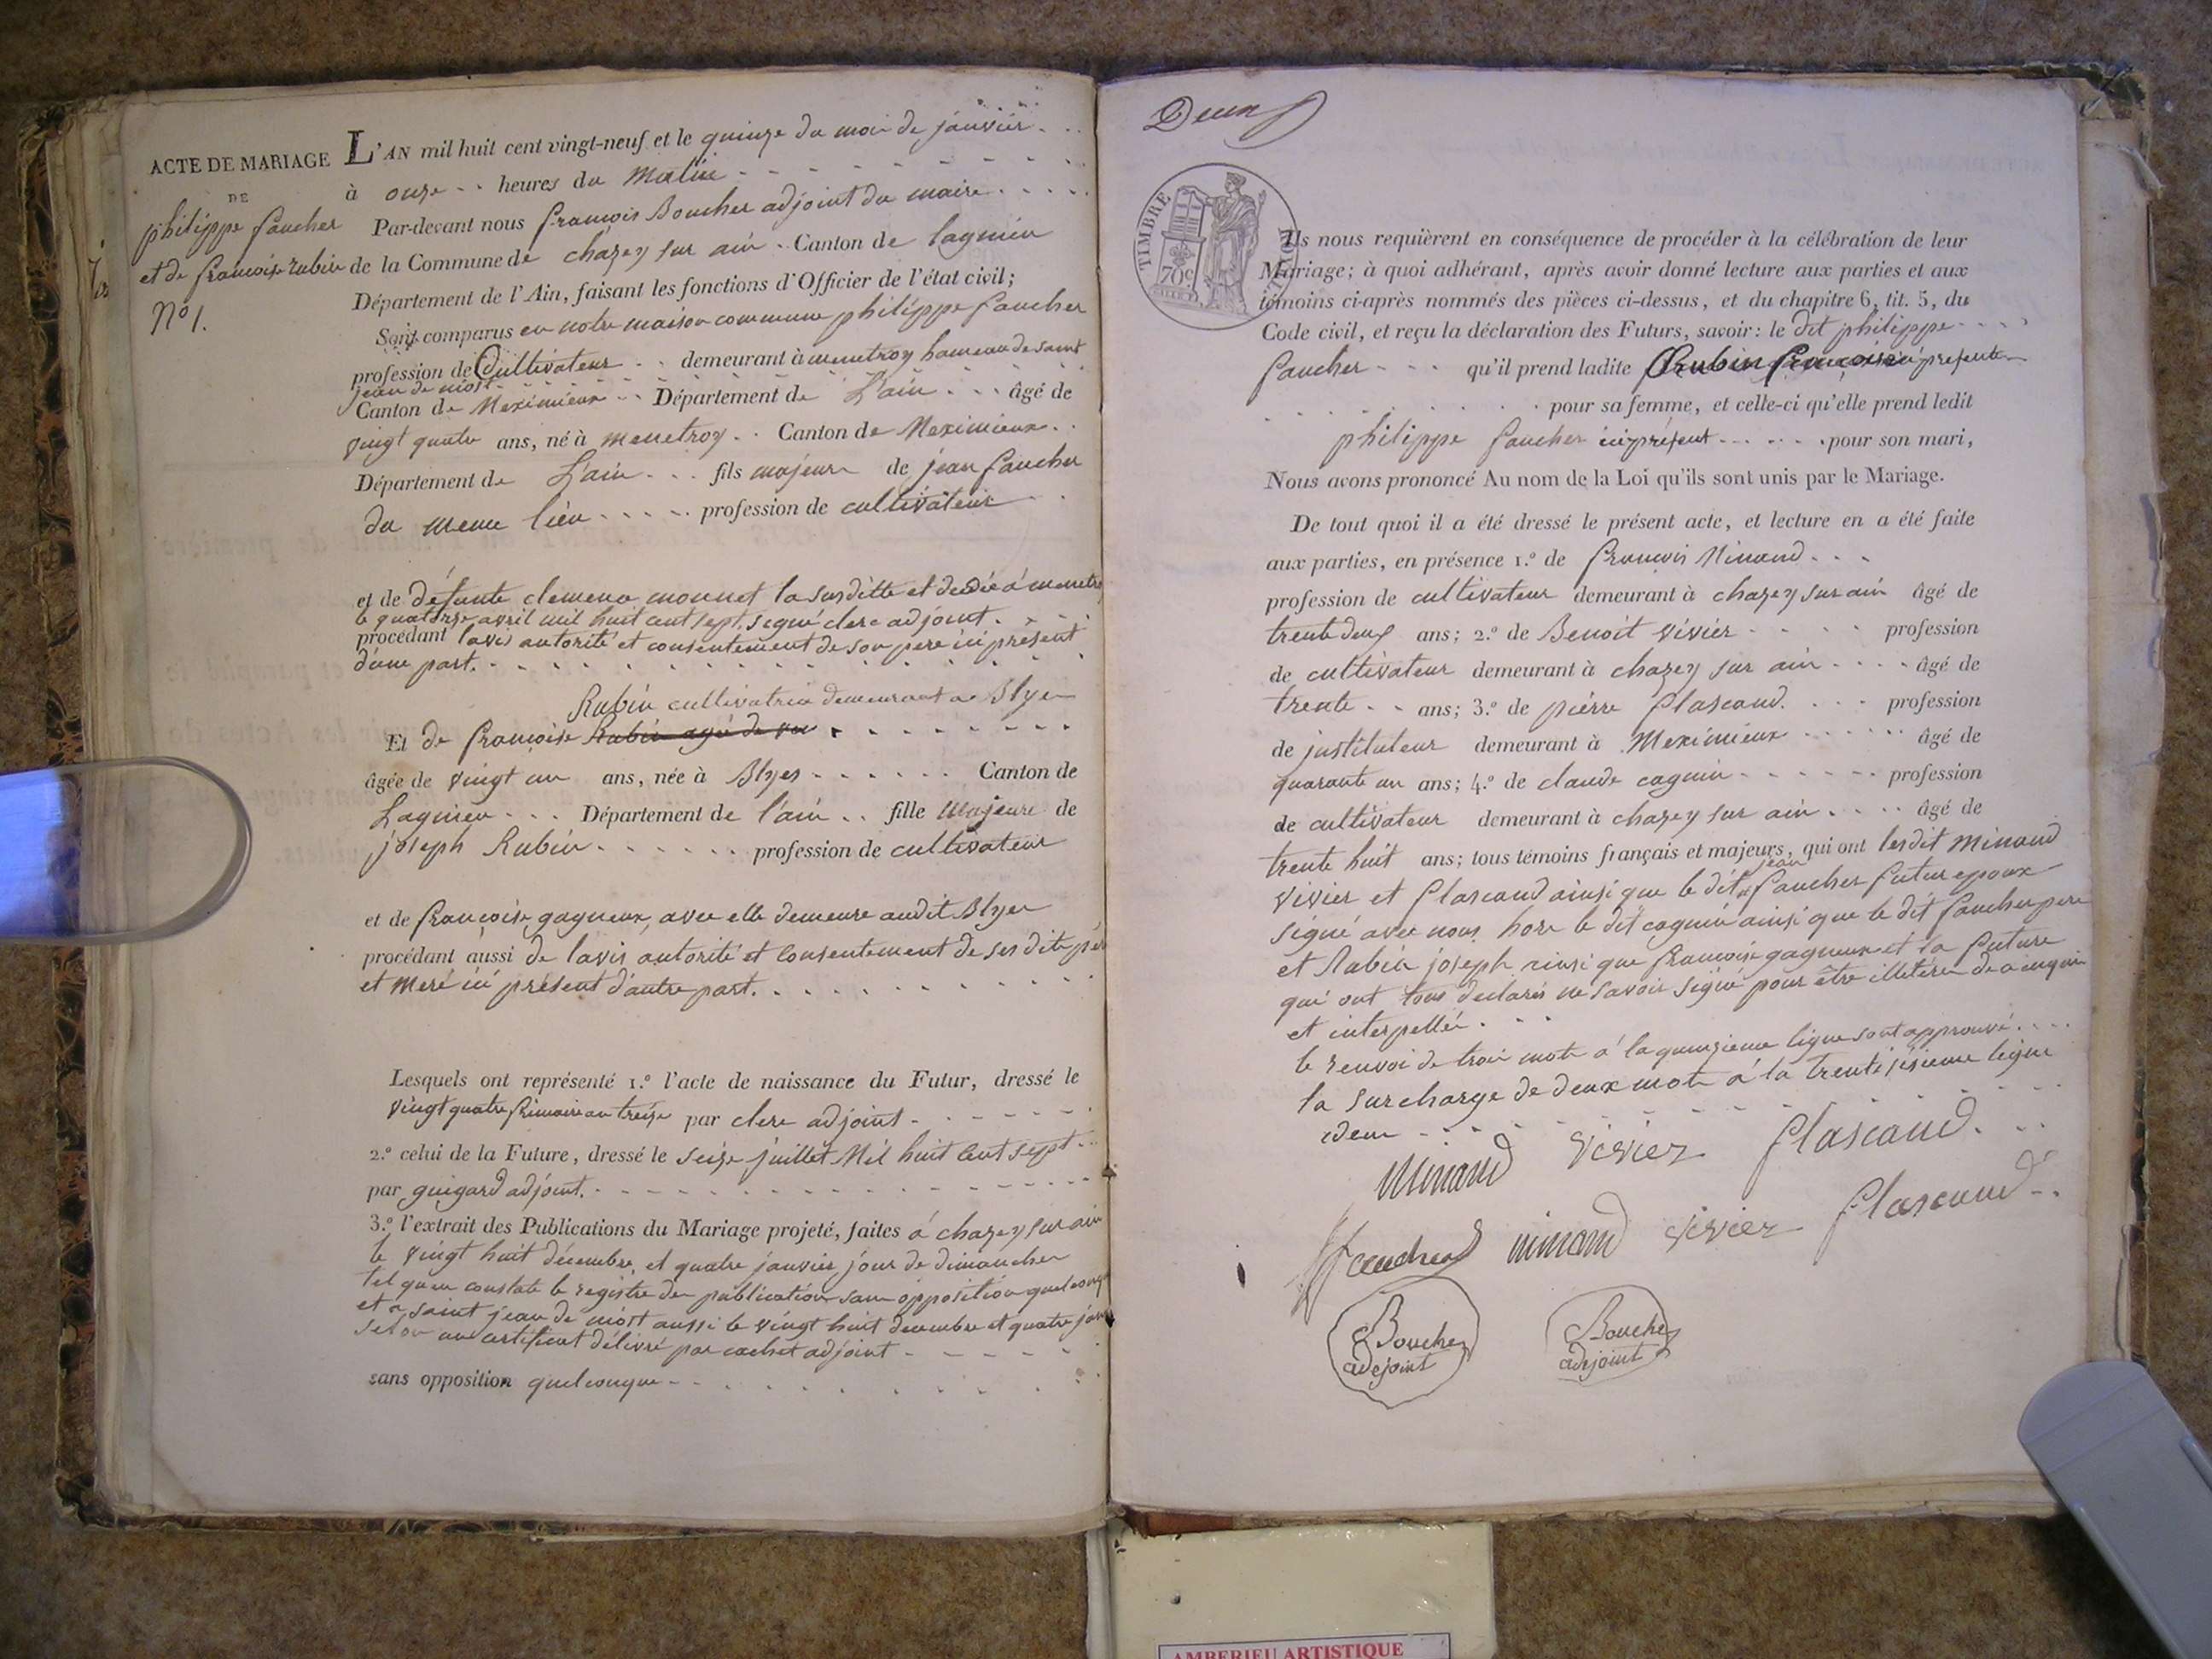 ACTE DE MARIAGE
DE
philippe faucher
et de francoise rubin
N° 1.
L'AN mil huit cent vingt-neuf et le quinze du moi de janvier
à onze heures du Matin
Par-devant nous francois Boucher adjoint du maire
de la Commune de chazey sur ain Canton de lagnieu
Département de l'Ain, faisant les fonctions d'Officier de l'état civil;
Sont comparus en notre maison commune philippe faucher
profession de Cultivateur demeurant à menetroy hameau de saint
jean de niost
Canton de Meximieux Département de L'ain âgé de
vingt quatre ans, né à menetroy Canton de Meximieux
Département de L'ain fils majeur de jean faucher
du meme lieu profession de cultivateur
et de défunte monnet la susditte et
le quatorze avril mil huit cent sept, signé clerc adjoint.
procédant lavis autorité et consentement de son pere ici présent
d'une part.
Rubin cultivatrice demeurant a Blye
Et de francoise Rubin agé de vin
âgée de vingt un ans, née à Blyes Canton de
Lagnieu Département de l'ain fille Majeure de
joseph Rubin profession de cultivateur
et de francoise gagneux, avec elle demeure audit Blyer
procédant aussi de lavis autorité et consentement de ses dits
et meré ici présent d'autre part.
Lesquels ont représenté 1.° l'acte de naissance du Futur, dressé le
vingt quatre frimaire an treize par clerc adjoint
2.° celui de la Future, dressé le seize juillet Mil huit Cent sept
par guigard adjoint.
3.° l'extrait des Publications du Mariage projeté, faites à chazey sur ain
le vingt huit décembre, et quatre janvier jour de dimancher
tel quen constate le registre der publication san opposition quelconque
et a saint jean de niost aussi le vingt huit decembre et quatre
selon un certificat délivré par cachet adjoint
sans opposition quelconque
Deux
TIMBRE
70c
Ils nous requièrent en conséquence de procéder à la célébration de leur
Mariage; à quoi adhérant, après avoir donné lecture aux parties et aux
témoins ci-après nommés des pièces ci-dessus, et du chapitre 6, tit. 5, du
Code civil, et reçu la déclaration des Futurs, savoir: le dit philippe
faucher qu'il prend ladite Rubin francoise ici présente
pour sa femme, et celle-ci qu'elle prend ledit
philippe faucher ici présent pour son mari,
Nous avons prononcé Au nom de la Loi qu'ils sont unis par le Mariage.
De tout quoi il a été dressé le présent acte, et lecture en a été faite
aux parties, en présence 1.° de francois Minand
profession de cultivateur demeurant à chazey sur ain âgé de
trente deux ans; 2.° de Benoit vivier profession
de cultivateur demeurant à chazey sur ain âgé de
trente ans; 3.° de piérre flascaud. profession
de justituteur demeurant à Meximieux âgé de
quarante un ans; 4.° de claude cagnin profession
de cultivateur demeurant à chazey sur ain âgé de
trente huit ans; tous témoins français et majeurs, qui ont les dit minand
jean
vivier et flascaud ainsi que le dit faucher futur epoux
signé avec nous, hors le dit cagnin ainsi que le dit faucher pere
et Rabin joseph ainsi que francoise gagneux et la future
qui ont tous declarés ne savoir signé pour être illetérer de ce enquis
et interpellér.
le renvoi de troi mots à la quinzieme ligne sont approuvé.
la surcharge de deux mots à la trente sisieme ligne
idem
minand vivier flascaud
faucher minand vivier flascaud
Boucher
adejoint
Boucher
adejoint
AMBERIEU ARTISTIQUE